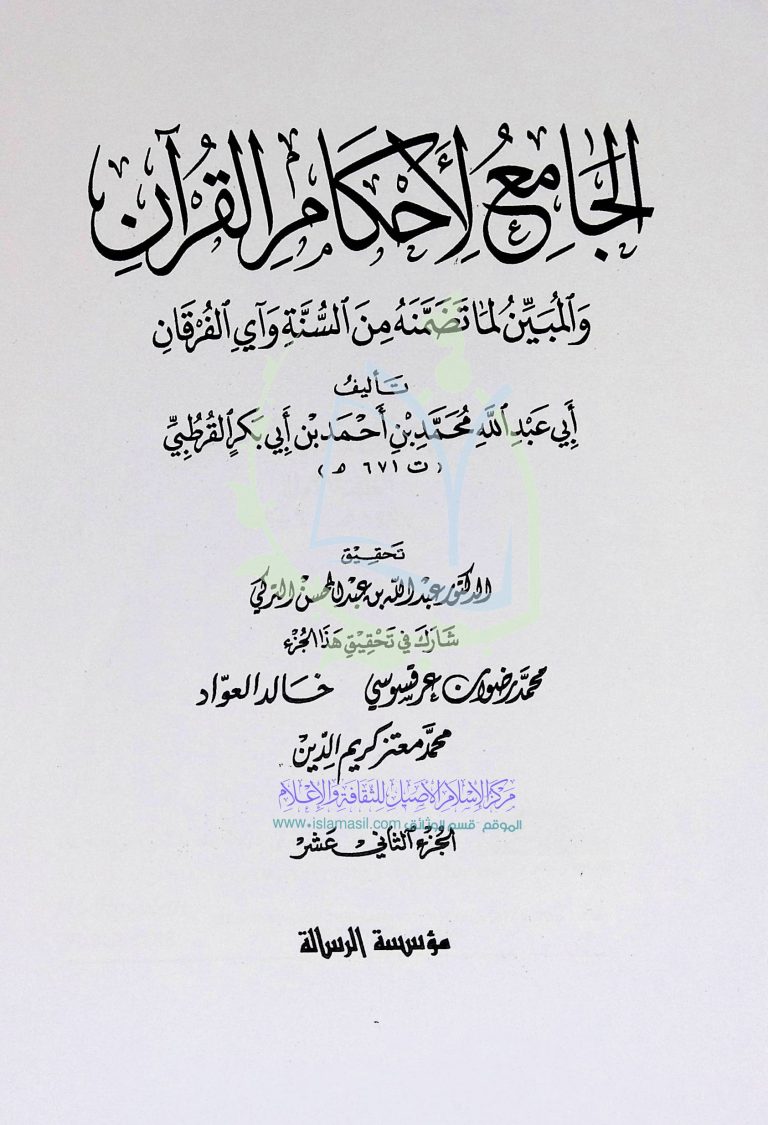 الجَامِعُ لِأَحْكَامِ القُرْآنِ
وَالمُبَيِّنُ لِمَا تَضَمَّنَهُ مِنَ السُّنَّةِ وَآيِ الفُرْقَانِ
تَأليفُ
أَبِي عَبْدِ اللَّهِ مُحَمَّدِ بْنِ أَحْمَدَ بْنِ أَبِي بَكْرٍ القُرْطُبِيِّ
(ت ٦٧١ ه)
تَحقِيْق
الدكتور عَبْد اللّه بن عَبْد المحسن التركي
شَارَكَ فِي تَحْقِيْقِ هَذَا الجُزْء
محمَّد رضوان عرقسوسي خَالد العوّاد
محمَّد معتز كريم الدِّين
مركز الإسلام الأصيل للثقافة والإعلام
الموقع - قسم الوثائق www.islamasil.com
الجُزْء الثَّانِي عَشَر
مؤسسة الرسالة